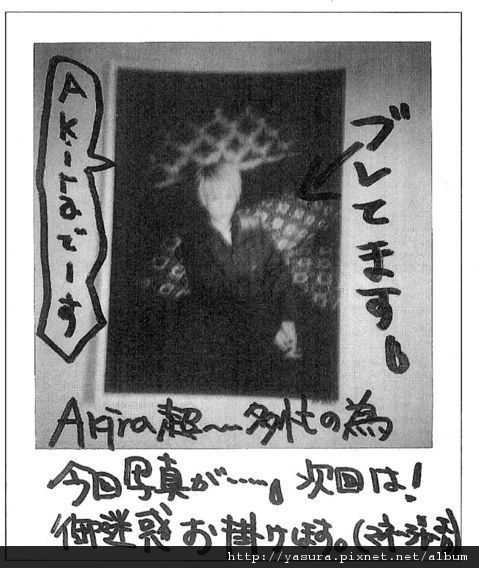 Akiraでーす
ブレてます。
Akira超〜多忙の為
今回写真が……。次回は！
御迷惑お掛けします。(マネージャー談)
http://yasura.pixnet.net/album